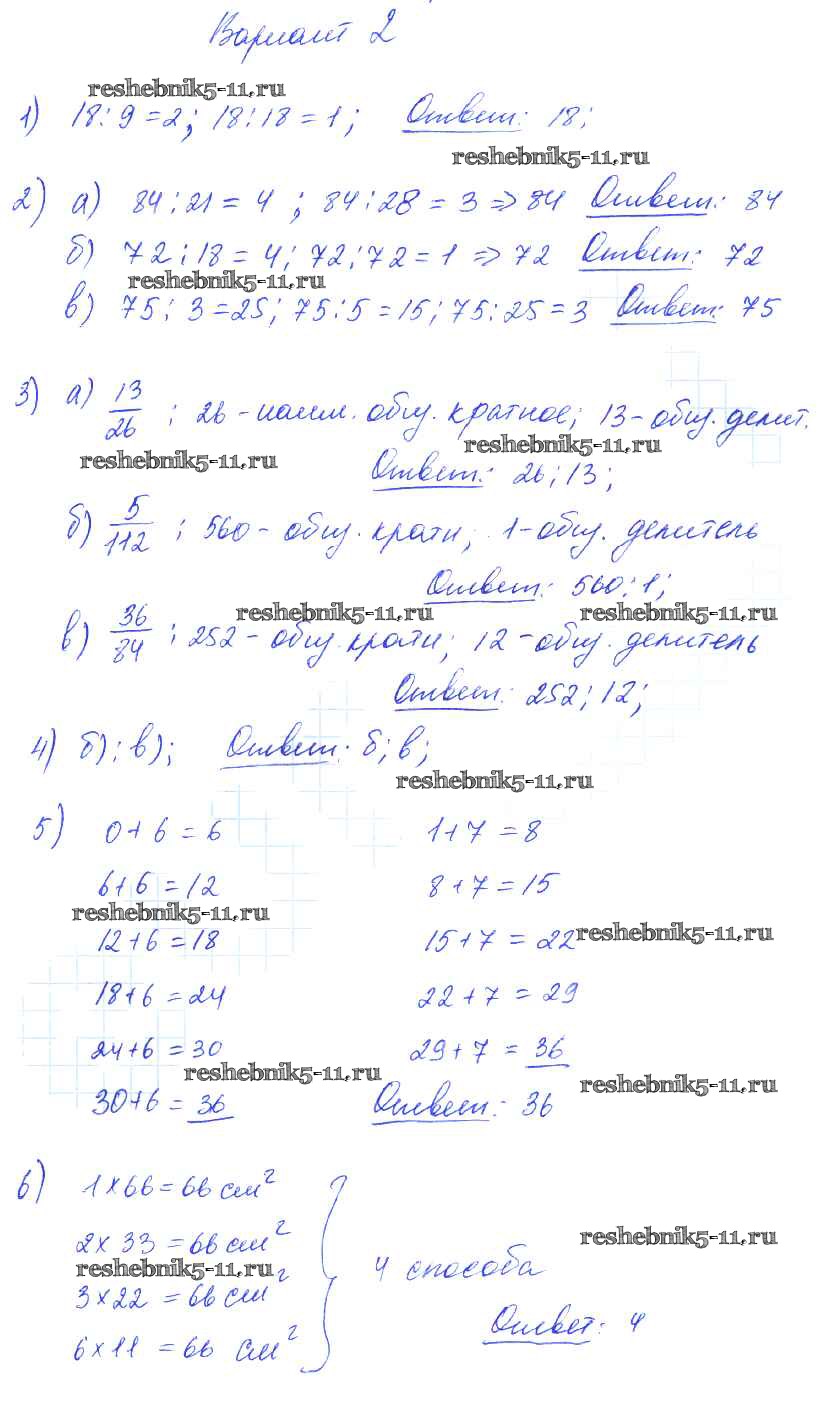 Вариант 2
reshebnik5-11.ru
1) 18:9=2; 18:18=1; Ответ: 18;
reshebnik5-11.ru
2) а) 84:21=4; 84:28=3⇒84 Ответ: 84
б) 72:18=4; 72:72=1⇒72 Ответ: 72
reshebnik5-11.ru
в) 75:3=25; 75:5=15; 75:25=3 Ответ: 75
3) а) 13/26; 26-наим. общ. кратное; 13-общ. делит.
reshebnik5-11.ru
reshebnik5-11.ru
Ответ: 26; 13;
б) 5/112; 560-общ. кратн; 1-общ. делитель
Ответ: 560; 1;
reshebnik5-11.ru reshebnik5-11.ru
в) 36/84; 252-общ. кратн; 12-общ. делитель
Ответ: 252; 12;
4) б); в); Ответ: б; в;
reshebnik5-11.ru
5) 0+6=6 1+7=8
6+6=12 8+7=15
reshebnik5-11.ru
12+6=18 15+7=22 reshebnik5-11.ru
18+6=24 22+7=29
24+6=30 29+7=36
reshebnik5-11.ru
reshebnik5-11.ru
30+6=36 Ответ: 36
6) 1×66=66 см²
2×33=66 см²
reshebnik5-11.ru
4 способа
reshebnik5-11.ru
3×22=66 см²
Ответ: 4
6×11=66 см²